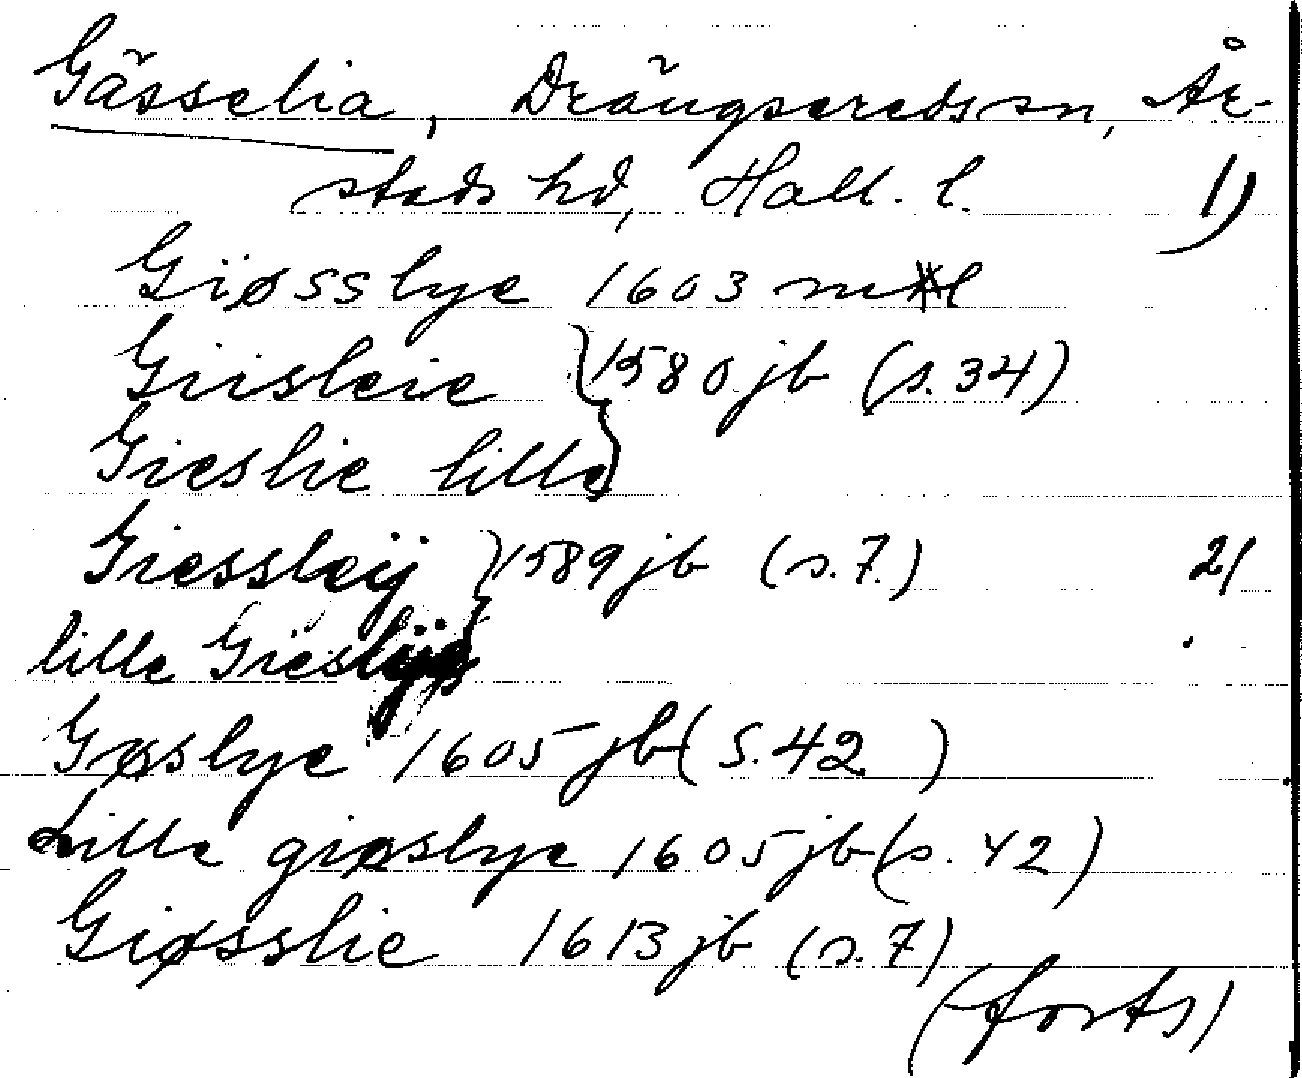 Gässelia, Drängsereds sn, År-
stads hd, Hall. l. 1)
Giøsslye 1603 mtl
Giisleie } 1580 jb (s. 34)
Gieslie lille }
Giessleÿ } 1589 jb (s. 7.) 2)
lille Gieslÿe }
Gøslye 1605 jb (s. 42)
Lille giøslye 1605 jb (s. 42)
Giøsslie 1613 jb (s. 7)
(forts)